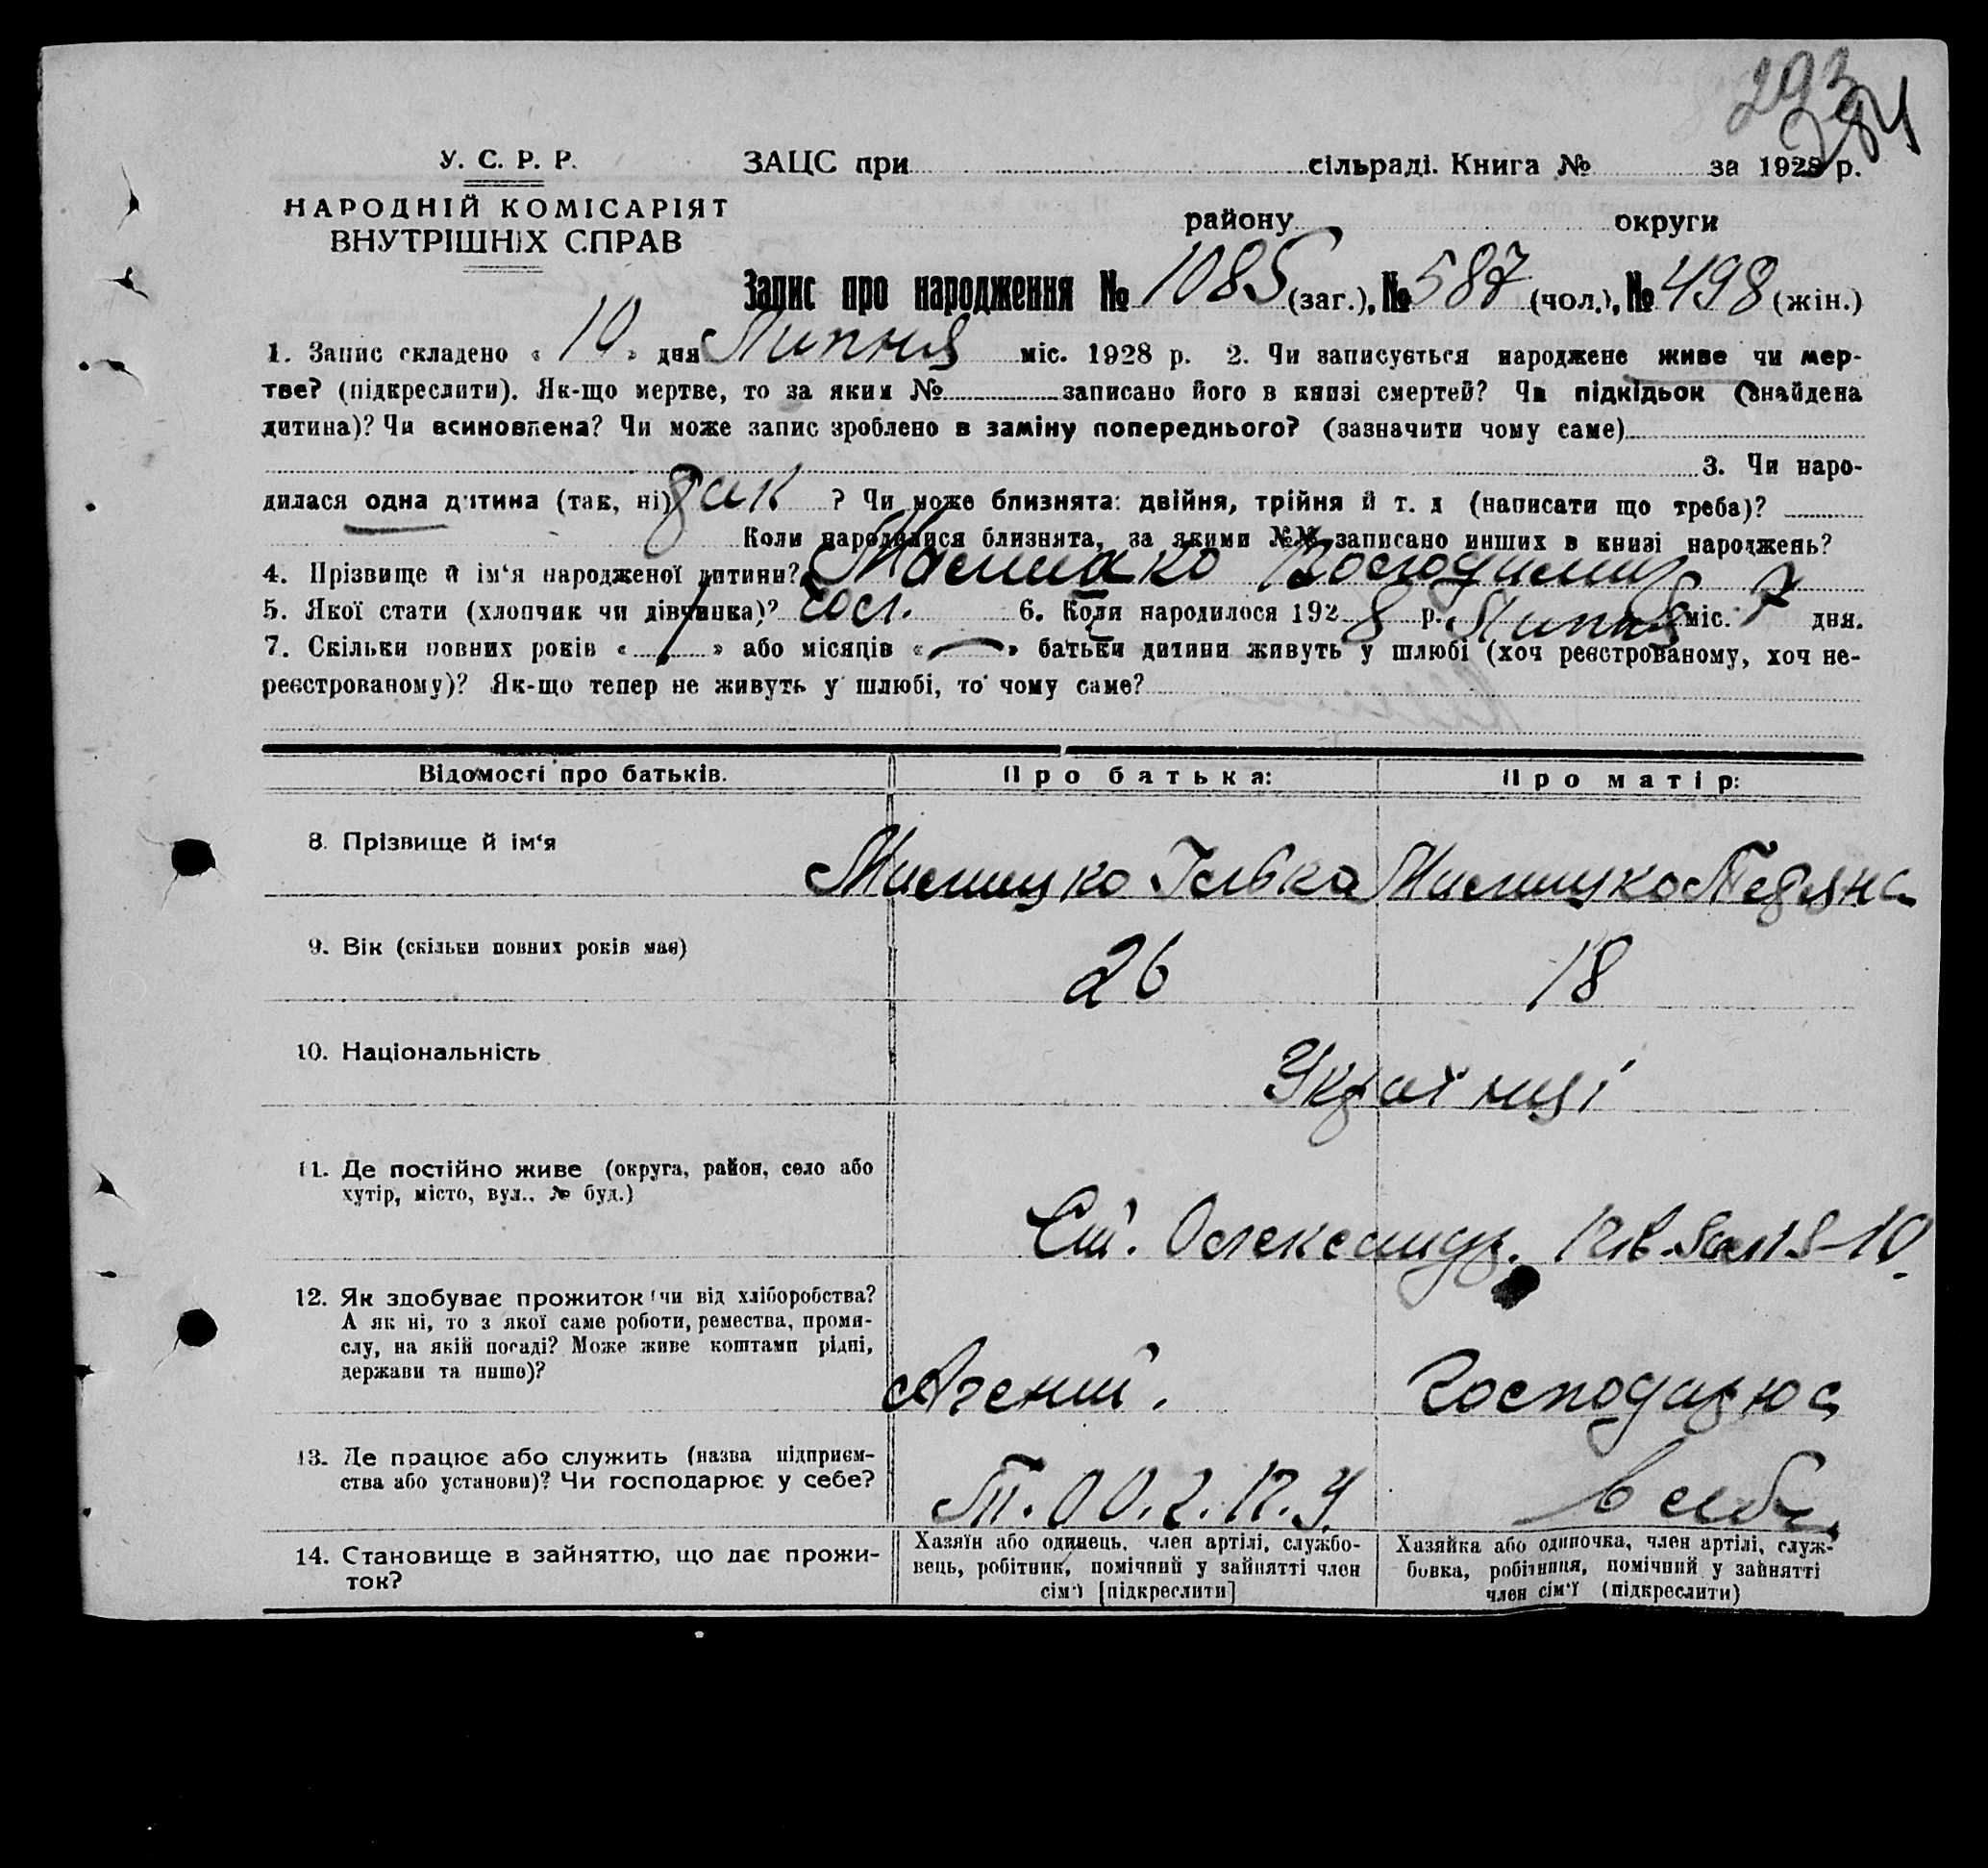 293
284
У. С. Р. Р.
ЗАЦС при сільраді. Книга № за 1928 р.
НАРОДНІЙ КОМІСАРІЯТ
ВНУТРІШНІХ СПРАВ
району округи
Запис про народження № 1085 (заг.), № 587 (чол.), № 498 (жін.)
1. Запис складено « 10 » дня Липня міс. 1928 р. 2. Чи записується народжене живе чи мер-
тве? (підкреслити). Як-що мертве, то за яким № записано його в книзі смертей? Чи підкідьок (знайдена
дитина)? Чи всиновлена? Чи може запис зроблено в заміну попереднього? (зазначити чому саме)
3. Чи наро-
дилася одна дитина (так, ні) так ? Чи може близнята: двійня, трійня й т. д (написати що треба)?
Коли народилися близнята, за якими №№ записано инших в книзі народжень?
4. Прізвище й ім‘я народженої дитини? Володимир
5. Якої стати (хлопчик чи дівчинка)? чол. 6. Коли народилося 1928 р. Липня міс. 7 дня.
7. Скільки повних років « 1 » або місяців « — » батьки дитини живуть у шлюбі (хоч реєстрованому, хоч не-
реєстрованому)? Як-що тепер не живуть у шлюбі, то чому саме?
Відомості про батьків. Про батька: Про матір:
8. Прізвище й ім‘я
9. Вік (скільки повних років має) 26 18
10. Національність Українці
11. Де постійно живе (округа, район, село або
хутір, місто, вул., № буд.)
Ст. Олександр.
12. Як здобуває прожиток (чи від хліборобства?
А як ні, то з якої саме роботи, ремества, проми-
слу, на якій посаді? Може живе коштами рідні,
держави та инше)?
Агент. Господарює
13. Де працює або служить (назва підприєм-
ства або установи)? Чи господарює у себе?
в себе
14. Становище в зайняттю, що дає прожи-
ток?
Хазяїн або одинець, член артілі, службо-
вець, робітник, помічний у зайнятті член
сім‘ї [підкреслити]
Хазяйка або одиночка, член артілі, служ-
бовка, робітниця, помічний у зайнятті
член сім‘ї (підкреслити)